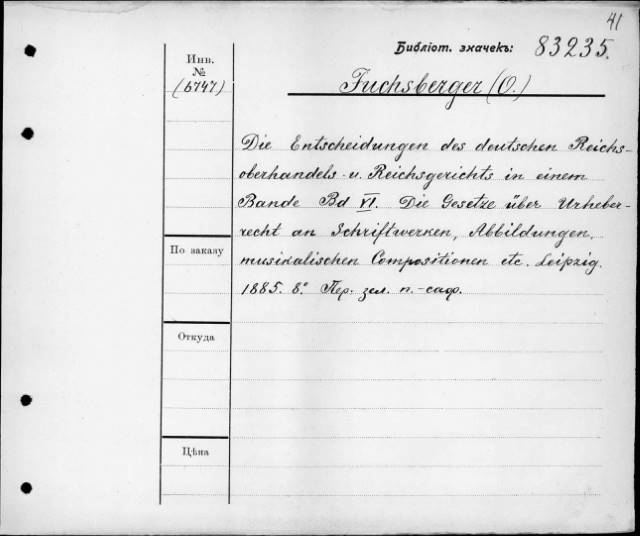 41
Библіот. значекъ: 83235.
Инв.
№
(6747)
Fuchsberger (O.)
Die Entscheidungen des deutschen Reichs-
oberhandels- u. Reichsgerichts in einem
Bande Bd VI. Die Gesetze über Urheber-
recht an Schriftwerken, Abbildungen,
musikalischen Compositionen etc. Leipzig.
1885. 8° Пер. зел. п.-саф.
По заказу
Откуда
Цѣна